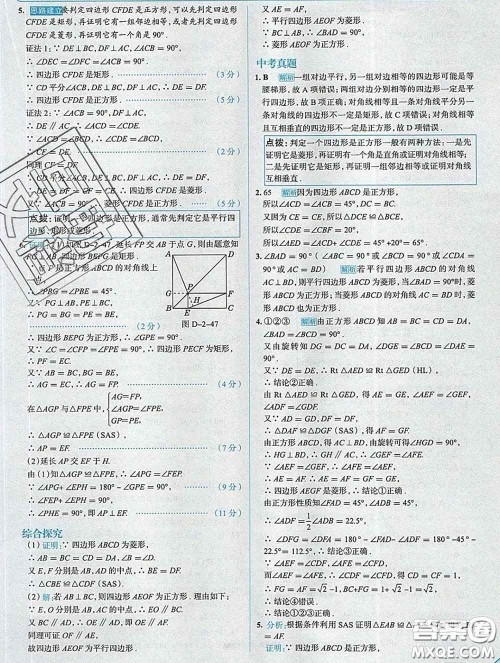 5. 思路建立 要判定四边形 CFDE 是正方形,可以先判定四边形
CFDE 是矩形,再证明它有一组邻边相等,或者先判定四边形
CFDE 是菱形,再证明它有一个角是 90°.
证法 1:∵ DE⊥BC,DF⊥AC,∠ACB = 90°,
∴ ∠DEC = ∠DFC = ∠ACB = 90°.
∴ 四边形 CFDE 是矩形. (3 分)
∵ CD 平分∠ACB,DE⊥BC,DF⊥AC,∴ DE = DF.
∴ 四边形 CFDE 是正方形. (5 分)
证法 2:∵ DE⊥BC,∠ACB = 90°,
∴ DE∥AC,∴
∵ CD平分∠ACB,
∴ CE = DE.
同理 CF = DF.
∴ 四边形 CFDE 是菱形.
又∵ ∠ACB = 90°,∴ 四边形 CFDE 是正方形. (5 分)
点拨:证明一个四边形是正方形,通常先判定它是平行四
边形、矩形或菱形.
(1)如图 D-2-47,延长 FP 交 AB 于点 G,则由题意知
FG⊥AB.
∵ P 是正方形 ABCD 的对角线上
∴ ∠PBG = ∠PBE = 45°.
又∵ PG⊥BE,PE⊥BE,
∴ PG = PE. (2 分)
图 D-2-47
∴ 四边形 BEPG 为正方形,∴ BE = BG.
又∵ ∠C = ∠CFP = 90°,∴ 四边形 PECF 为矩形.
∴ PF = EC.又∵ AB = BC,
∴ AG = EC,∴ AG = FP. (4 分)
在△AGP 与△FPE 中,
AG = FP,
∠AGP = ∠FPE,
GP = PE,
∴ △AGP≌△FPE(SAS), (7 分)
∴ AP = EF.
(2)延长 AP 交 EF 于 H.
由(1)知∠APG = ∠FEP.
又∵ ∠APG + ∠EPH = 180° - ∠GPE = 90°, (9 分)
∴ ∠FEP + ∠EPH = 90°,
∴ ∠PHE = 90°,即 AP⊥EF. (11 分)
综合探究
(1)证明:∵ 四边形 ABCD 为菱形,
∴ AB = BC = CD = DA,∠B = ∠D.
又 E,F 分别是 AB,AD 的中点,∴ BE = DF.
∴ △CBE≌△CDF(SAS).
(2)解:若 AB⊥BC,则四边形 AEOF 为正方形.理由如下:
∵ E,O 分别是 AB,AC 的中点,∴ EO∥BC.
又 BC∥AD,∴ OE∥AD,即 OE∥AF.
同理可证 OF∥AE,
故四边形 AEOF 为平行四边形.
又 AE = AF,
∴ 平行四边形 AEOF 为菱形.
∵ AB⊥BC,∴ ∠BAD = 90°,
∴ 菱形 AEOF 为正方形.
中考真题
1. B 解析 一组对边平行,另一组对边相等的四边形可能是等
腰梯形,故 A 项错误;两组对边分别相等的四边形一定是平
行四边形,故 B 项正确;对角线相等且一条对角线平分另一
条对角线的四边形不一定是矩形,故 C 项错误;对角线相等
且互相垂直的四边形不一定是正方形,故 D 项错误.
点拨:判定一个四边形是正方形一般有两种方法:一是
先证明它是菱形,再证明有一个角是直角或证明对角线相等;
二是先证明它是矩形,再证明一组邻边相等或证明对角线
互相垂直.
2. 65 解析 因为四边形 ABCD 是正方形,
所以∠ACD = ∠ACB = 45°,DC = BC.
又因为 CE = CE,所以△DCE≌△BCE.
所以∠CDE = ∠CBE = 20°.
所以∠AED = ∠ACD + ∠CDE = 45° + 20° = 65°.
3. ∠BAD = 90°(∠ABC = 90°或∠BCD = 90°或∠CDA =
90°或 AC = BD) 解析 若平行四边形 ABCD 的对角线
AC⊥BD,则平行四边形 ABCD 为菱形,当∠BAD = 90°时,
菱形 ABCD 也为正方形;若对角线 AC⊥BD 且 AC = BD 时,菱
形 ABCD 也为正方形.
4. ①②③ 解析 由正方形 ABCD 知 AD = DC = BC = AB,
∠BAD = 90°.
又由旋转知 DG = DC = DA,∠DGE = ∠BCD = ∠DAE =
90°.
又∵ DE = DE,∴ Rt △AED≌Rt △GED(HL),
∴ 结论②正确.
由 Rt △AED≌Rt △GED,得 AE = GE,∠AEF = ∠GEF,
∠ADF = ∠GDF.
又 AD = DG,DF = DF,
∴ △ADF≌△GDF(SAS),得 AF = GF.
由正方形 ABCD,得 AC⊥BD,由旋转可得∠HGD = 90°.
∴ HG⊥BD,∴ GH∥AC,∴ ∠GEF = ∠AFE.
∵ ∠AEF = ∠GEF,∴ ∠AEF = ∠AFE.
∴ AE = AF,∴ AE = AF = GF = GE,
∴ 四边形 AEGF 是菱形,∴ 结论①正确.
由正方形性质知∠ADB = 45°,
∴ ∠ADF = 1/2∠ADB = 22.5°,
∴ ∠DFG = ∠DFA = 180° - ∠DAF - ∠ADF = 180° - 45°
-22.5° = 112.5°.∴ 结论③正确.
∵ ∠CDF = ∠CFD,∴ CF = CD = 1.
∴ FG = AF = √2 - 1,BC + FG = 1 + √2 - 1 = √2.
∴ 结论④错误.
∴ 结论①②③正确.
5. 分析:根据条件利用 SAS 证明△EAB≌
证明:∵ 四边形 ABCD 是正方形,
答案圈
MXQE.COM